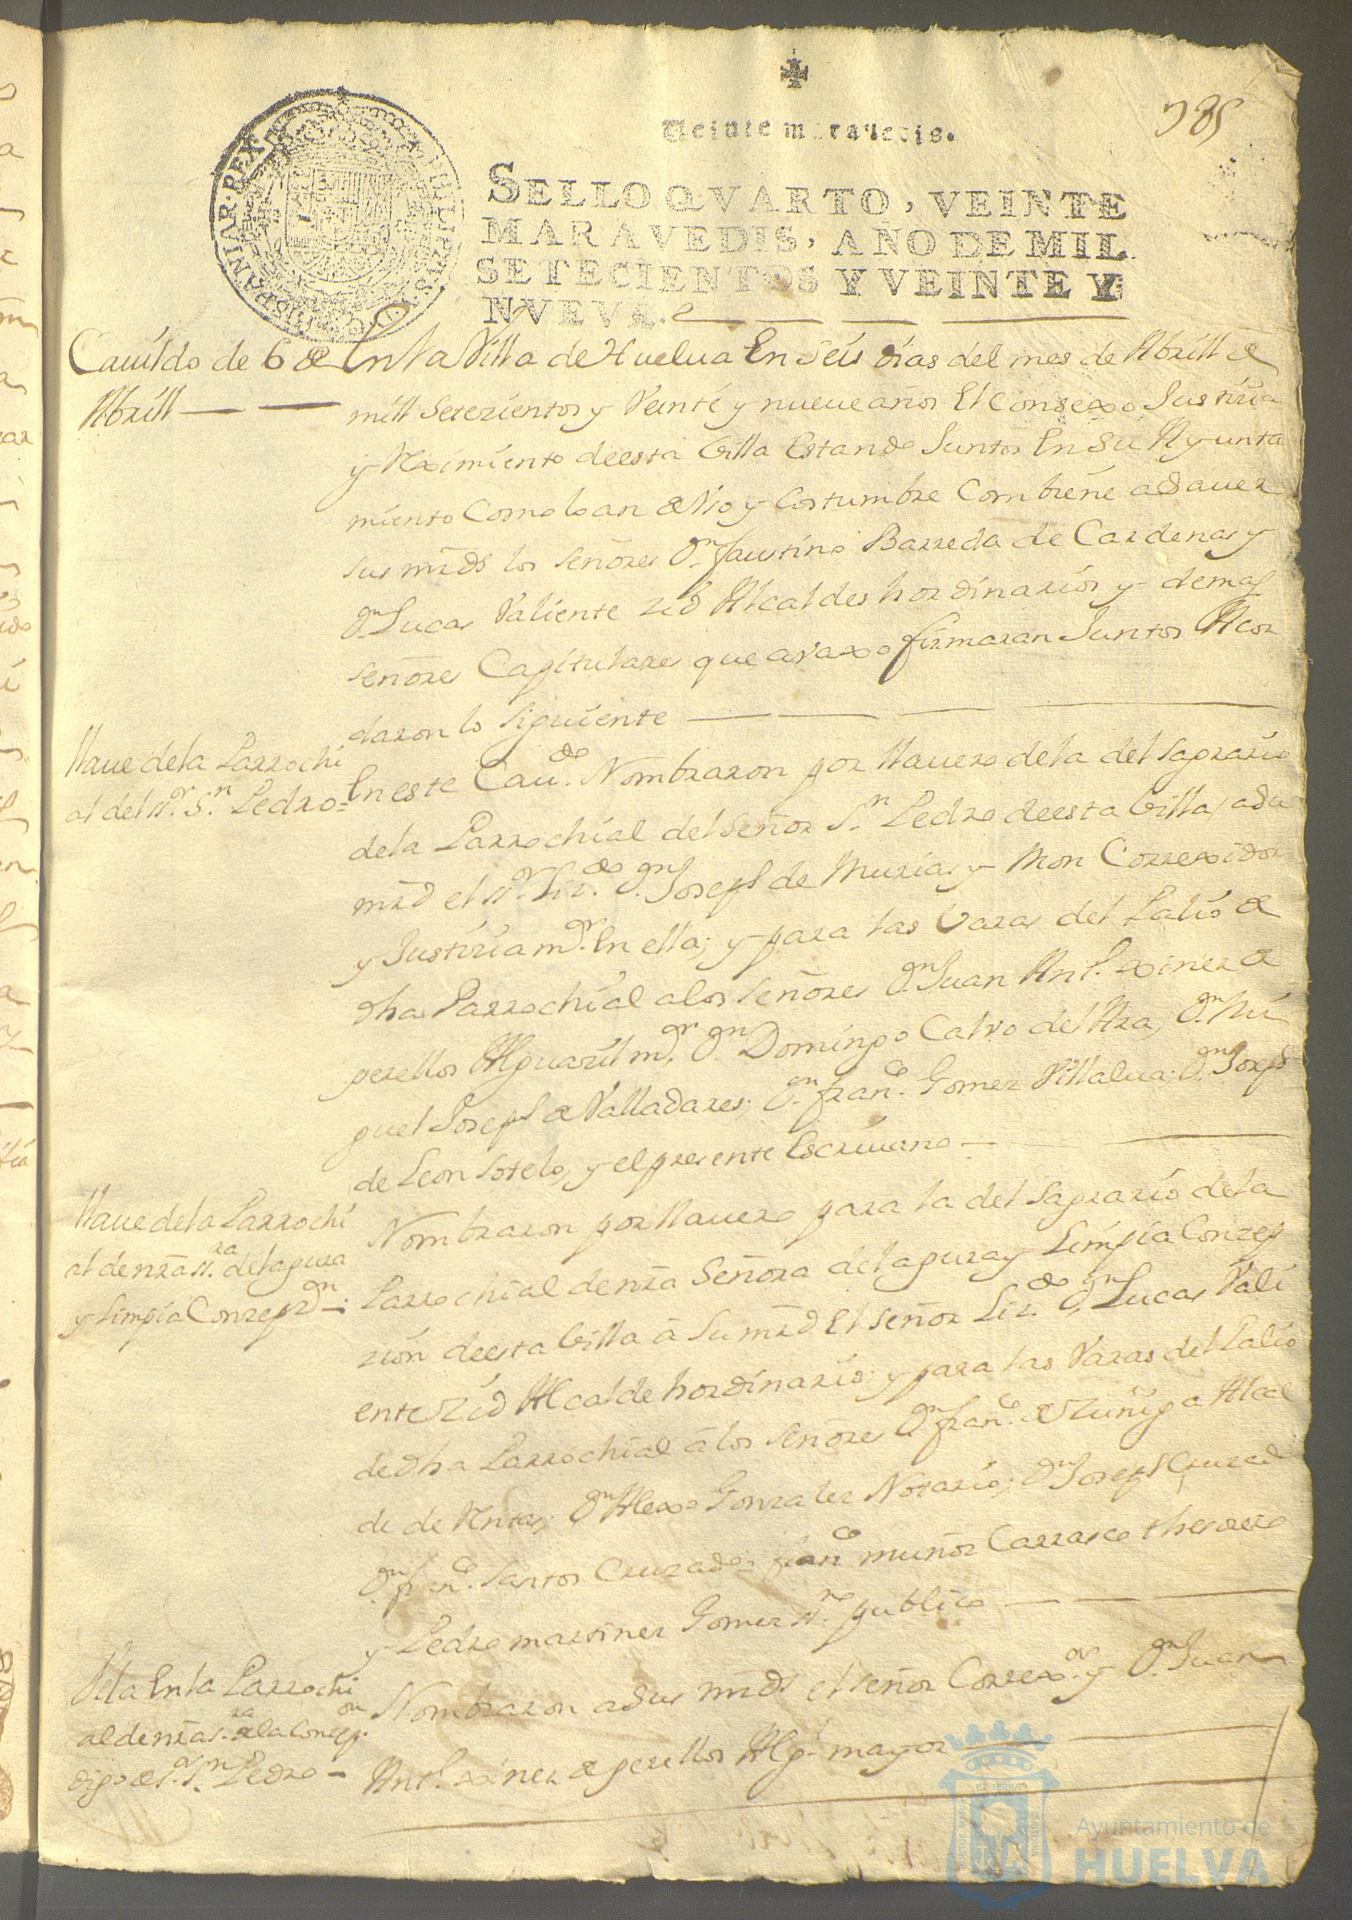 385
Veinte maravedis.
SELLO QVARTO, VEINTE
MARAVEDIS, AÑO DE MIL
SETECIENTOS Y VEINTE Y
NVEVE.
HISPANIAR·REX
Cauildo de 6 de
Abrill
En la Villa de Huelua En seis dias del mes de Abrill de
mill setezientos y Veinte y nueue años El Consexo Justizia
y Reximiento de esta Villa Estando Juntos En su Ayunta
miento Como lo an de Vso y Costumbre Combiene a Sauer
sus mrds los señores Dn faustino Barreda de Cardenas y
Dn Lucas Valiente zid Alcaldes hordinarios y demas
señores Capitulares que avaxo firmaran Juntos Acor
daron lo siguiente
llaue de la Parrochi
al del sr. Sn Pedro
En este Caudo. Nombraron por llauero de la del Sagrario
de la Parrochial del Señor Sn Pedro de esta Villa, a su
mrd el sr. Lizdo. Dn Joseph de Murias y Mon Correxidor
y Justizia mor. En ella; y para las Varas del Palio de
dha Parrochial a los señores Dn Juan Antt. Ximenez de
perellos Alguazil mr, Dn Domingo Calvo del Ara, Dn Mi
guel Joseph de Valladares; Dn franco. Gomez Villalua; Dn Joseph
de Leon Sotelo, y el presente Escriuano
llaue de la Parrochi
al de nra sra. de la pura
y limpia Conzepon
Nombraron por llauero para la del Sagrario de la
Parrochial de nra Señora de la pura y Limpia Conzep
zion de esta Villa â Su mrd El señor Lizdo Dn Lucas Vali
ente zid Alcalde hordinario; y para las Varas del Palio
de dha Parrochial â los señores Dn franco. de zuñiga Alcal
de de Rentas; Dn Alexo Gonzalez Notario; Dn Joseph Cruzado
Dn franco. Santos Cruzado; franco muñoz Carrasco thesorero
y Pedro martinez Gomez sno. publico
En la Parrochi
al de nra sra. de la Conzepon.
digo de sr. Sn Pedro
Nombraron a Sus mrds el señor Correxor. y Dn Juan
Antt. Ximenez de perellos Algl mayor
Ayuntamiento de
HUELVA